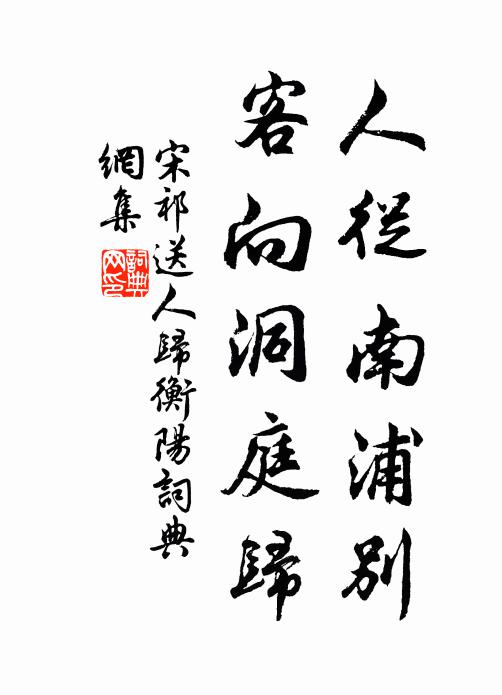 人從南浦別
客向洞庭歸
宋祁送人歸衡陽詞典
網集
詞典
网印